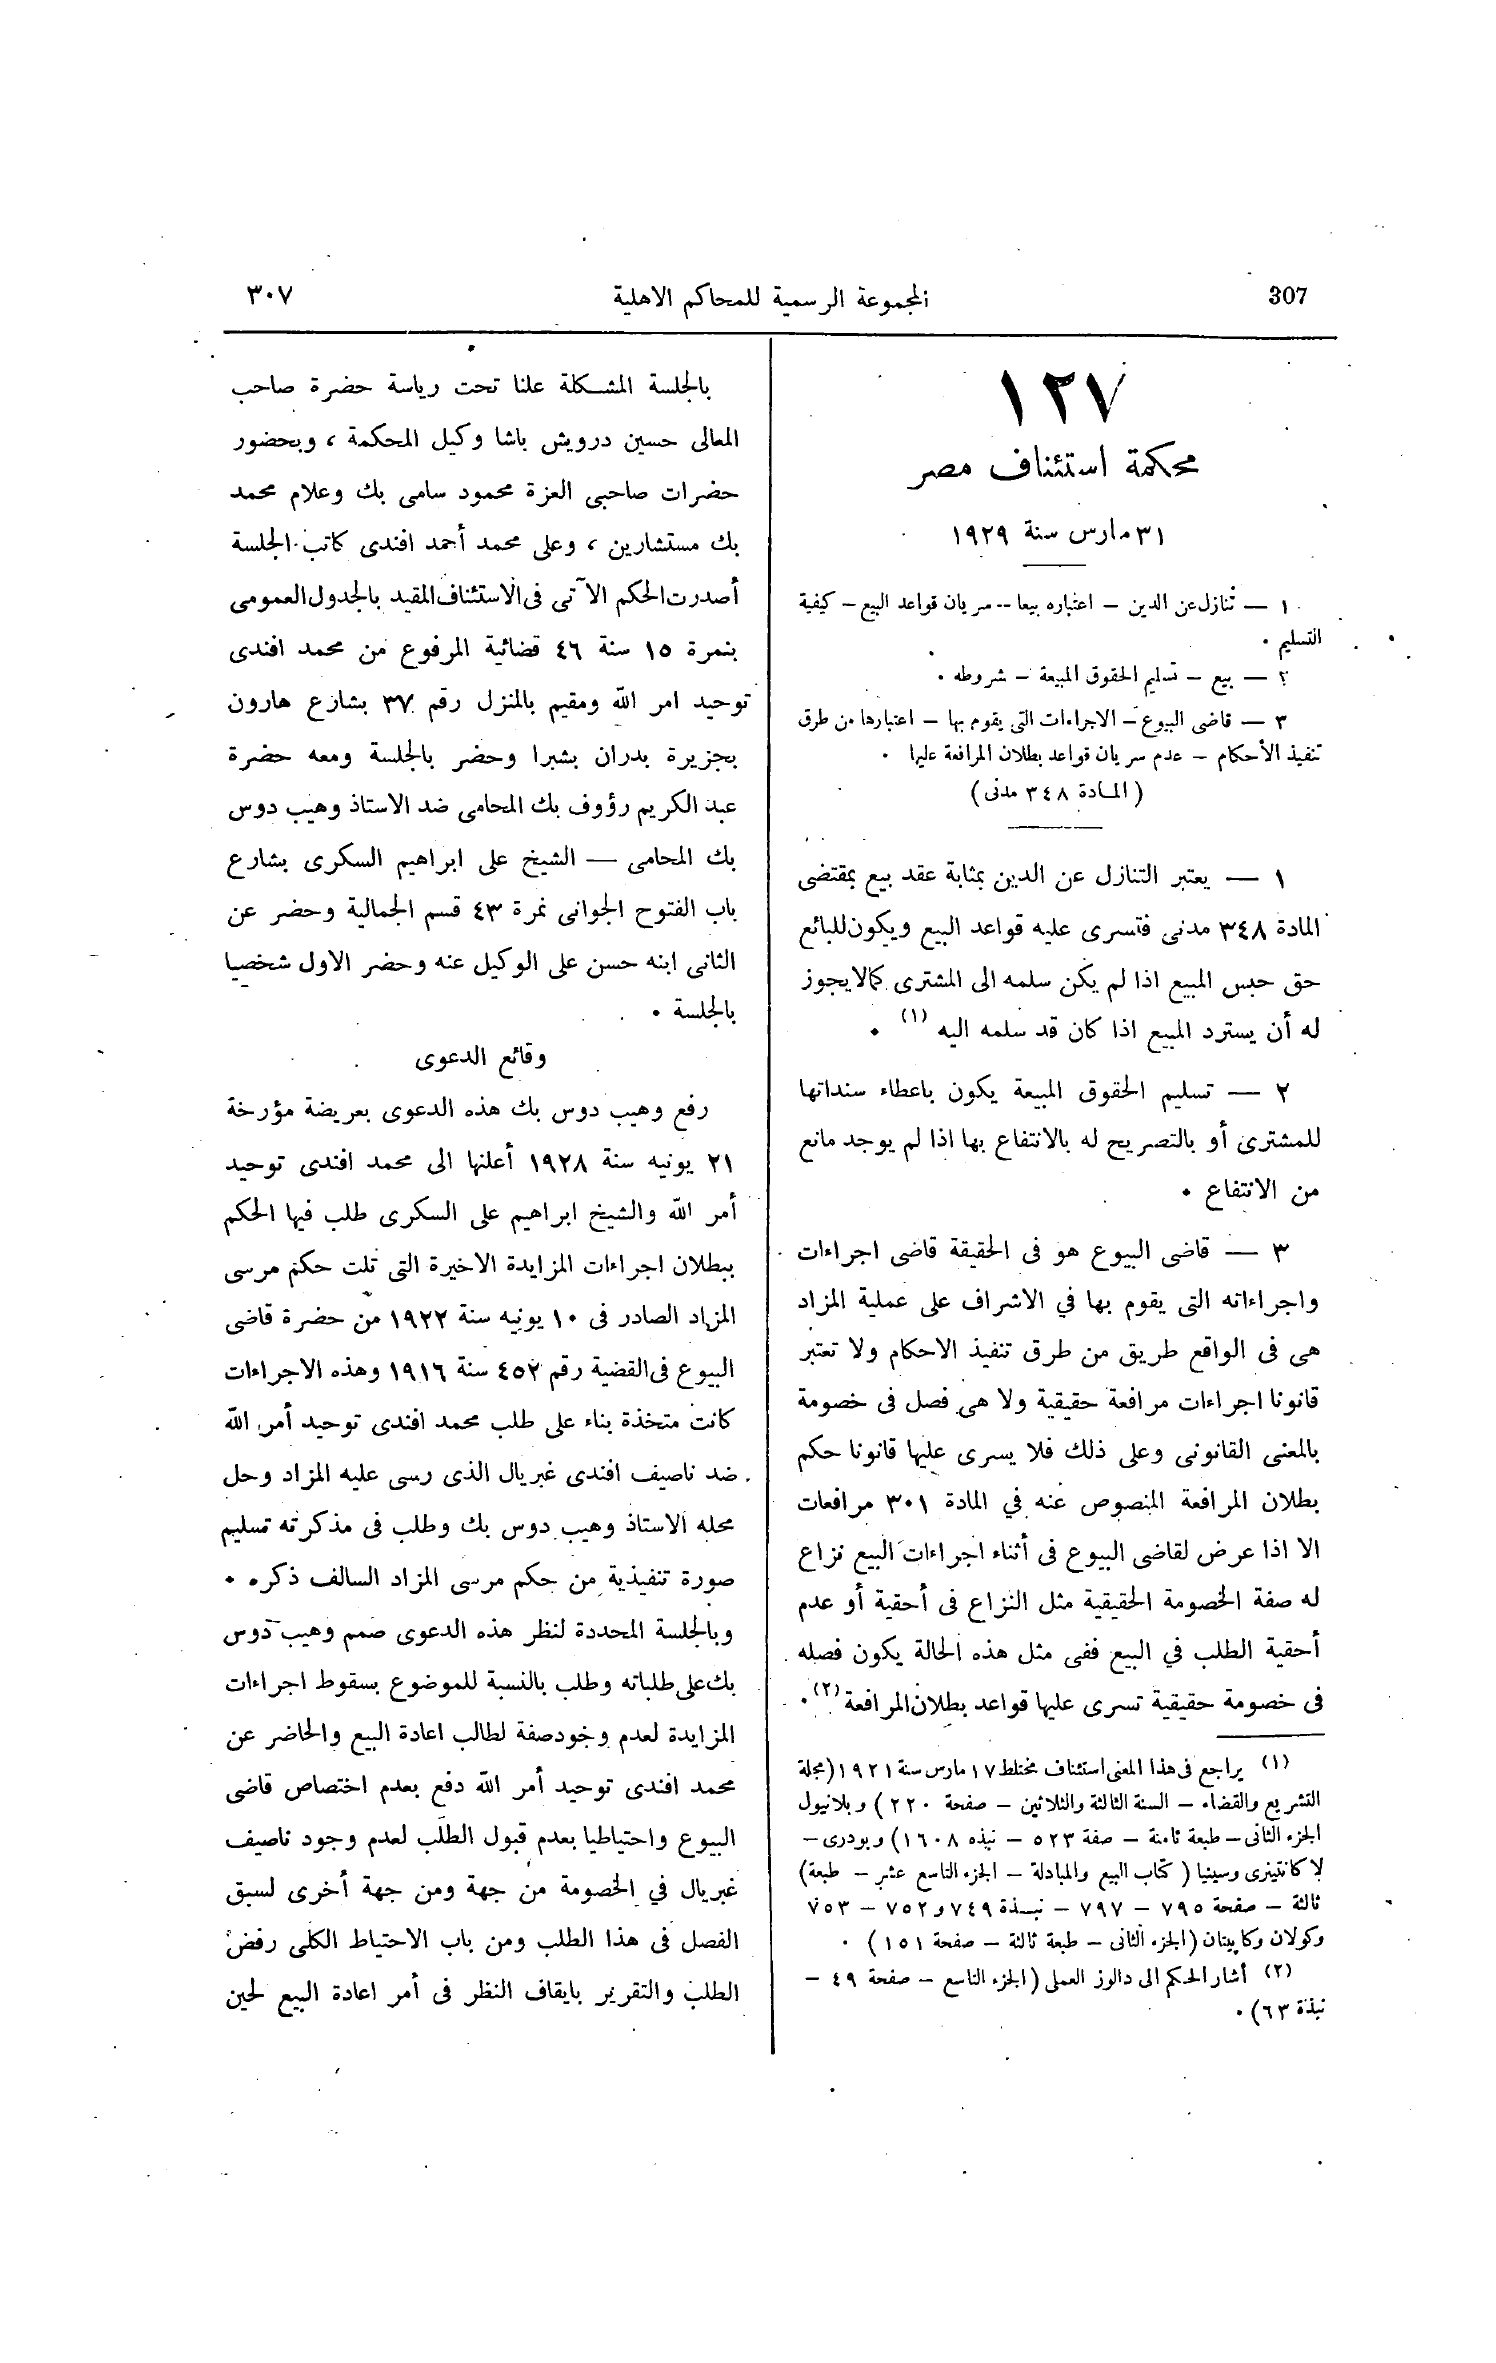 307
المجموعة الرسمية للمحاكم الاهلية
٣٠٧
١٢٧
محكمة استئناف مصر
٣١ مارس سنة ١٩٢٩
١ — تنازل عن الدين — اعتباره بيعا -- سريان قواعد البيع — كيفية
التسليم ٠
٢ — بيع — تسليم الحقوق المبيعة — شروطه ٠
٣ — قاضى البيوع — الاجراءات التى يقوم بها — اعتبارها من طرق
تنفيذ الأحكام — عدم سريان قواعد بطلان المرافعة عليها ٠
( المادة ٣٤٨ مدنى )
١ — يعتبر التنازل عن الدين بمثابة عقد بيع بمقتضى
المادة ٣٤٨ مدنى فتسرى عليه قواعد البيع ويكون للبائع
حق حبس المبيع اذا لم يكن سلمه الى المشترى كما لا يجوز
له أن يسترد المبيع اذا كان قد سلمه اليه (١) ٠
٢ — تسليم الحقوق المبيعة يكون باعطاء سنداتها
للمشترى أو بالتصريح له بالانتفاع بها اذا لم يوجد مانع
من الانتفاع ٠
٣ — قاضى البيوع هو فى الحقيقة قاضى اجراءات
واجراءاته التى يقوم بها في الاشراف على عملية المزاد
هى فى الواقع طريق من طرق تنفيذ الاحكام ولا تعتبر
قانونا اجراءات مرافعة حقيقية ولا هى فصل فى خصومة
بالمعنى القانونى وعلى ذلك فلا يسرى عليها قانونا حكم
بطلان المرافعة المنصوص عنه في المادة ٣٠١ مرافعات
الا اذا عرض لقاضى البيوع فى أثناء اجراءات البيع نزاع
له صفة الخصومة الحقيقية مثل النزاع فى أحقية أو عدم
أحقية الطلب في البيع ففى مثل هذه الحالة يكون فصله
فى خصومة حقيقية تسرى عليها قواعد بطلان المرافعة (٢) ٠
(١) يراجع فى هذا المعنى استئناف مختلط ١٧ مارس سنة ١٩٢١ (مجلة
التشريع والقضاء — السنة الثالثة والثلاثين — صفحة ٢٢٠) وبلانيول
الجزء الثانى — طبعة ثامنة — صفة ٥٢٣ — نبذه ١٦٠٨) وبودرى —
لاكانتينرى وسينيا ( كتاب البيع والمبادلة — الجزء التاسع عشر — طبعة)
ثالثة — صفحة ٧٩٥ — ٧٩٧ — نبذة ٧٤٩ و ٧٥٢ — ٧٥٣
وكولان وكابيتان (الجزء الثانى — طبعة ثالثة — صفحة ١٥١) ٠
(٢) أشار الحكم الى دالوز العملى (الجزء التاسع — صفحة ٤٩ —
نبذة ٦٣) ٠
بالجلسة المشكلة علنا تحت رياسة حضرة صاحب
المعالى حسين درويش باشا وكيل المحكمة ، وبحضور
حضرات صاحبى العزة محمود سامى بك وعلام محمد
بك مستشارين ، وعلى محمد أحمد افندى كاتب الجلسة
أصدرت الحكم الآتى فى الاستئناف المقيد بالجدول العمومى
بنمرة ١٥ سنة ٤٦ قضائية المرفوع من محمد افندى
توحيد امر الله ومقيم بالمنزل رقم ٣٧ بشارع هارون
بجزيرة بدران بشبرا وحضر بالجلسة ومعه حضرة
عبد الكريم رؤوف بك المحامى ضد الاستاذ وهيب دوس
بك المحامى — الشيخ على ابراهيم السكرى بشارع
باب الفتوح الجوانى نمرة ٤٣ قسم الجمالية وحضر عن
الثانى ابنه حسن على الوكيل عنه وحضر الاول شخصيا
بالجلسة ٠
وقائع الدعوى
رفع وهيب دوس بك هذه الدعوى بعريضة مؤرخة
٢١ يونيه سنة ١٩٢٨ أعلنها الى محمد افندى توحيد
أمر الله والشيخ ابراهيم على السكرى طلب فيها الحكم
ببطلان اجراءات المزايدة الاخيرة التى تلت حكم مرسى
المزاد الصادر فى ١٠ يونيه سنة ١٩٢٢ من حضرة قاضى
البيوع فى القضية رقم ٤٥٢ سنة ١٩١٦ وهذه الاجراءات
كانت متخذة بناء على طلب محمد افندى توحيد أمر الله
ضد ناصيف افندى غبريال الذى رسى عليه المزاد وحل
محله الاستاذ وهيب دوس بك وطلب فى مذكرته تسليم
صورة تنفيذية من حكم مرسى المزاد السالف ذكره ٠
وبالجلسة المحددة لنظر هذه الدعوى صمم وهيب دوس
بك على طلباته وطلب بالنسبة للموضوع بسقوط اجراءات
المزايدة لعدم وجود صفة لطالب اعادة البيع والحاضر عن
محمد افندى توحيد أمر الله دفع بعدم اختصاص قاضى
البيوع واحتياطيا بعدم قبول الطلب لعدم وجود ناصيف
غبريال في الخصومة من جهة ومن جهة أخرى لسبق
الفصل فى هذا الطلب ومن باب الاحتياط الكلى رفض
الطلب والتقرير بايقاف النظر فى أمر اعادة البيع لحين